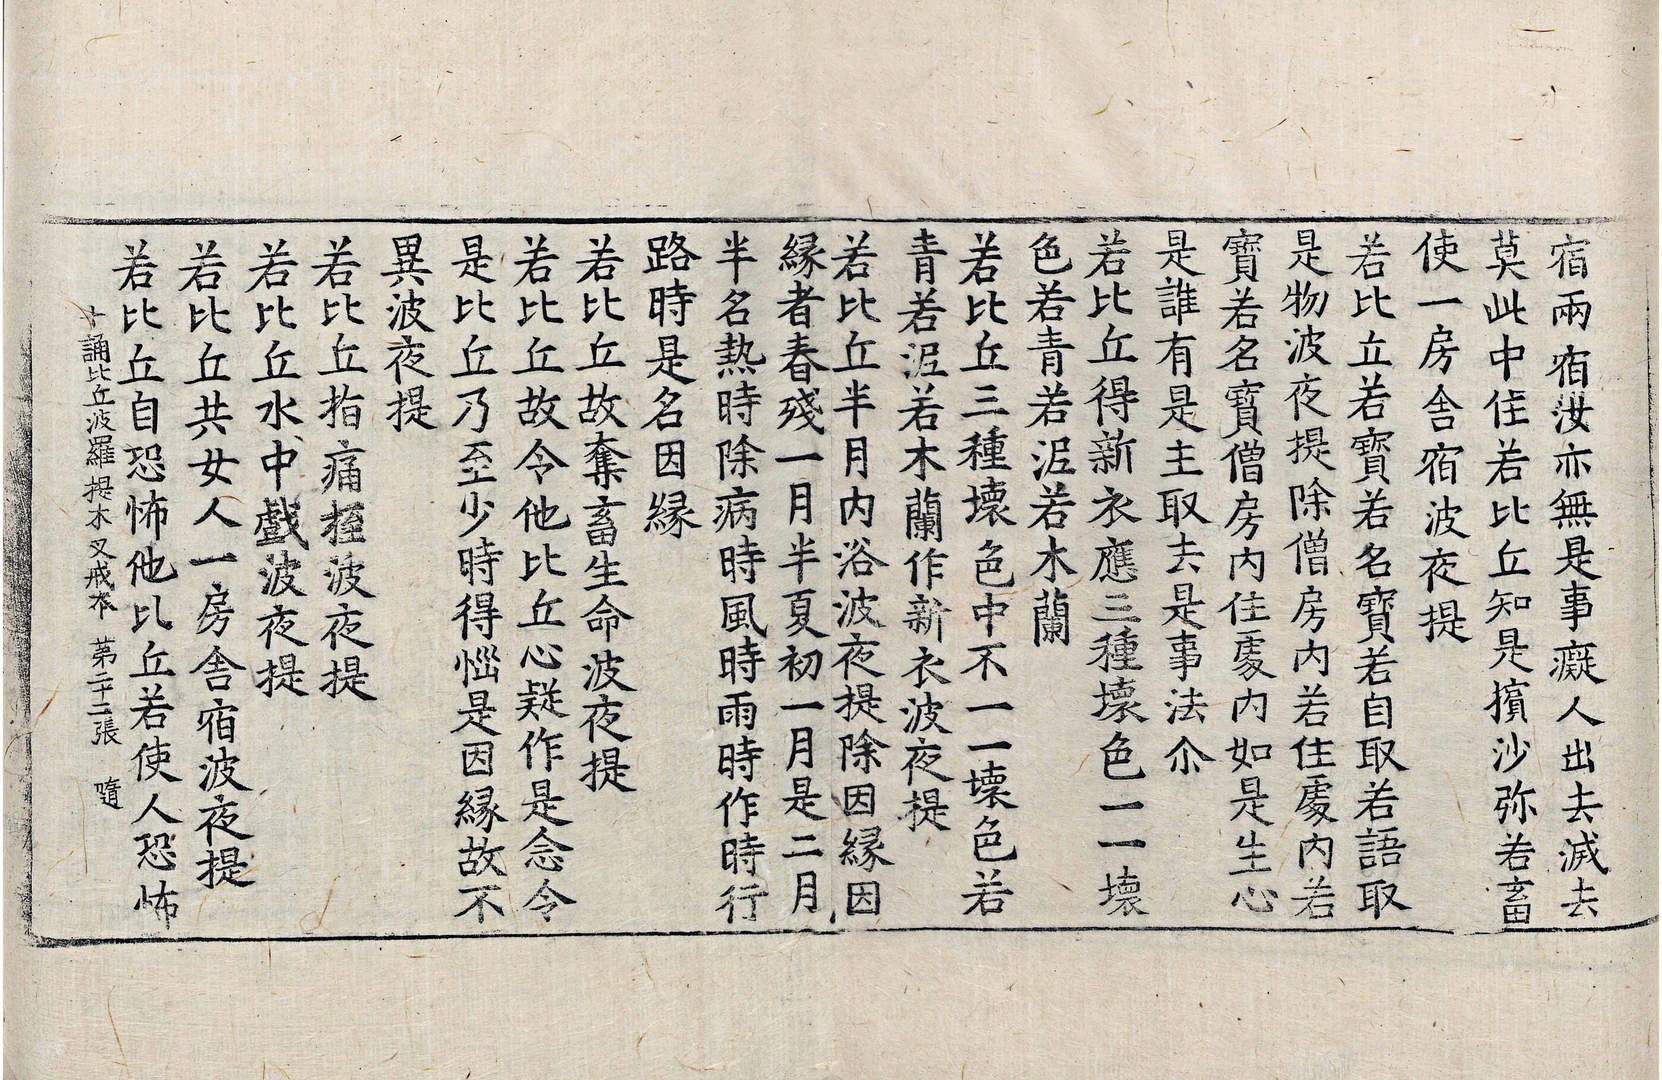 宿兩宿汝亦無是事癡人出去滅去
莫此中住若比丘知是擯沙弥若畜
使一房舍宿波夜提
若比丘若寶若名寶若自取若語取
是物波夜提除僧房內若住處內若
寶若名寶僧房內住處內如是生心
是誰有是主取去是事法尒
若比丘得新衣應三種壞色一一壞
色若青若泥若木蘭
若比丘三種壞色中不一一壞色若
青若泥若木蘭作新衣波夜提
若比丘半月內浴波夜提除因緣因
緣者春殘一月半夏初一月是二月
半名熱時除病時風時雨時作時行
路時是名因緣
若比丘故奪畜生命波夜提
若比丘故令他比丘心疑作是念令
是比丘乃至少時得惱是因緣故不
異波夜提
若比丘指痛挃波夜提
若比丘水中戲波夜提
若比丘共女人一房舍宿波夜提
若比丘自恐怖他比丘若使人恐怖
十誦比丘波羅提木叉戒本 第二十二張 隨